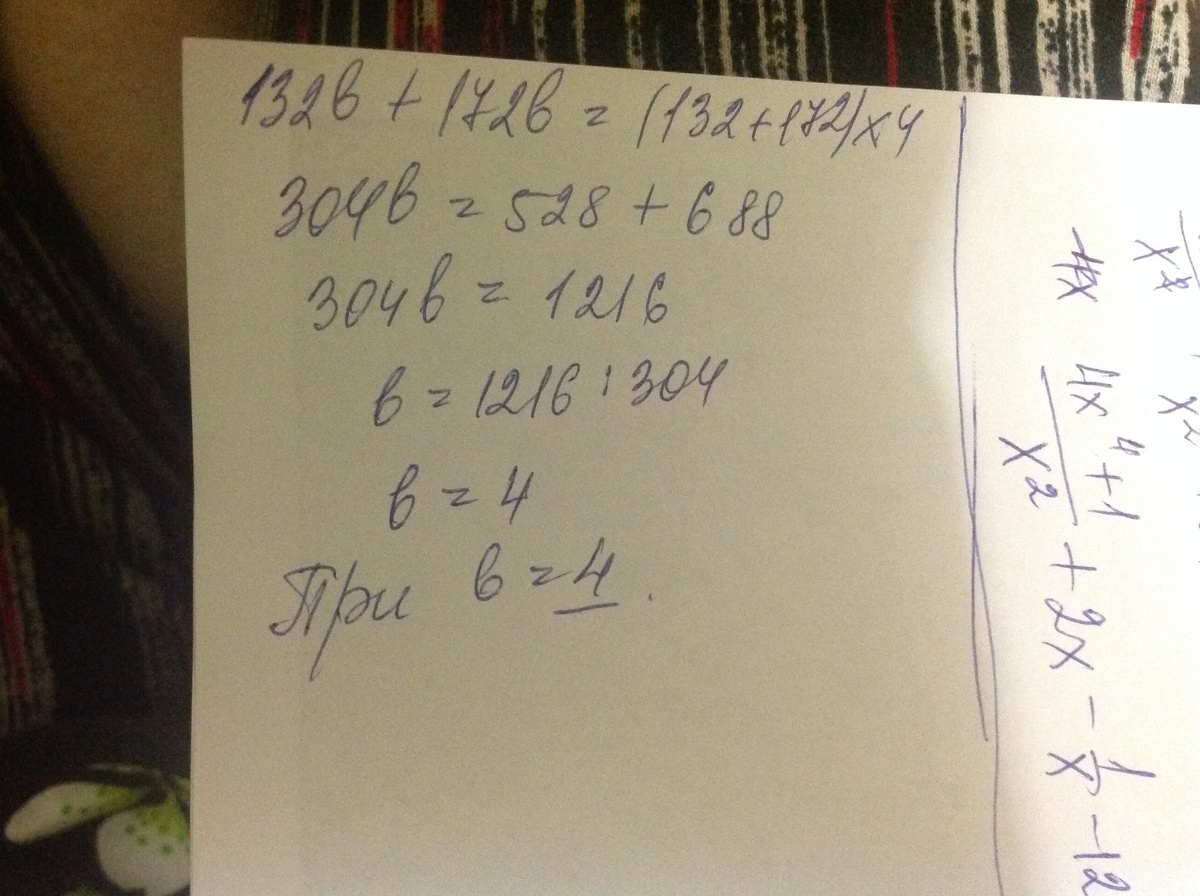 132в + 172в = (132+172)×4
304в = 528 + 688
304в = 1216
в = 1216 : 304
в = 4
При в = 4.
4x
4x⁴+1/x² + 2x - 1/x - 12
x²